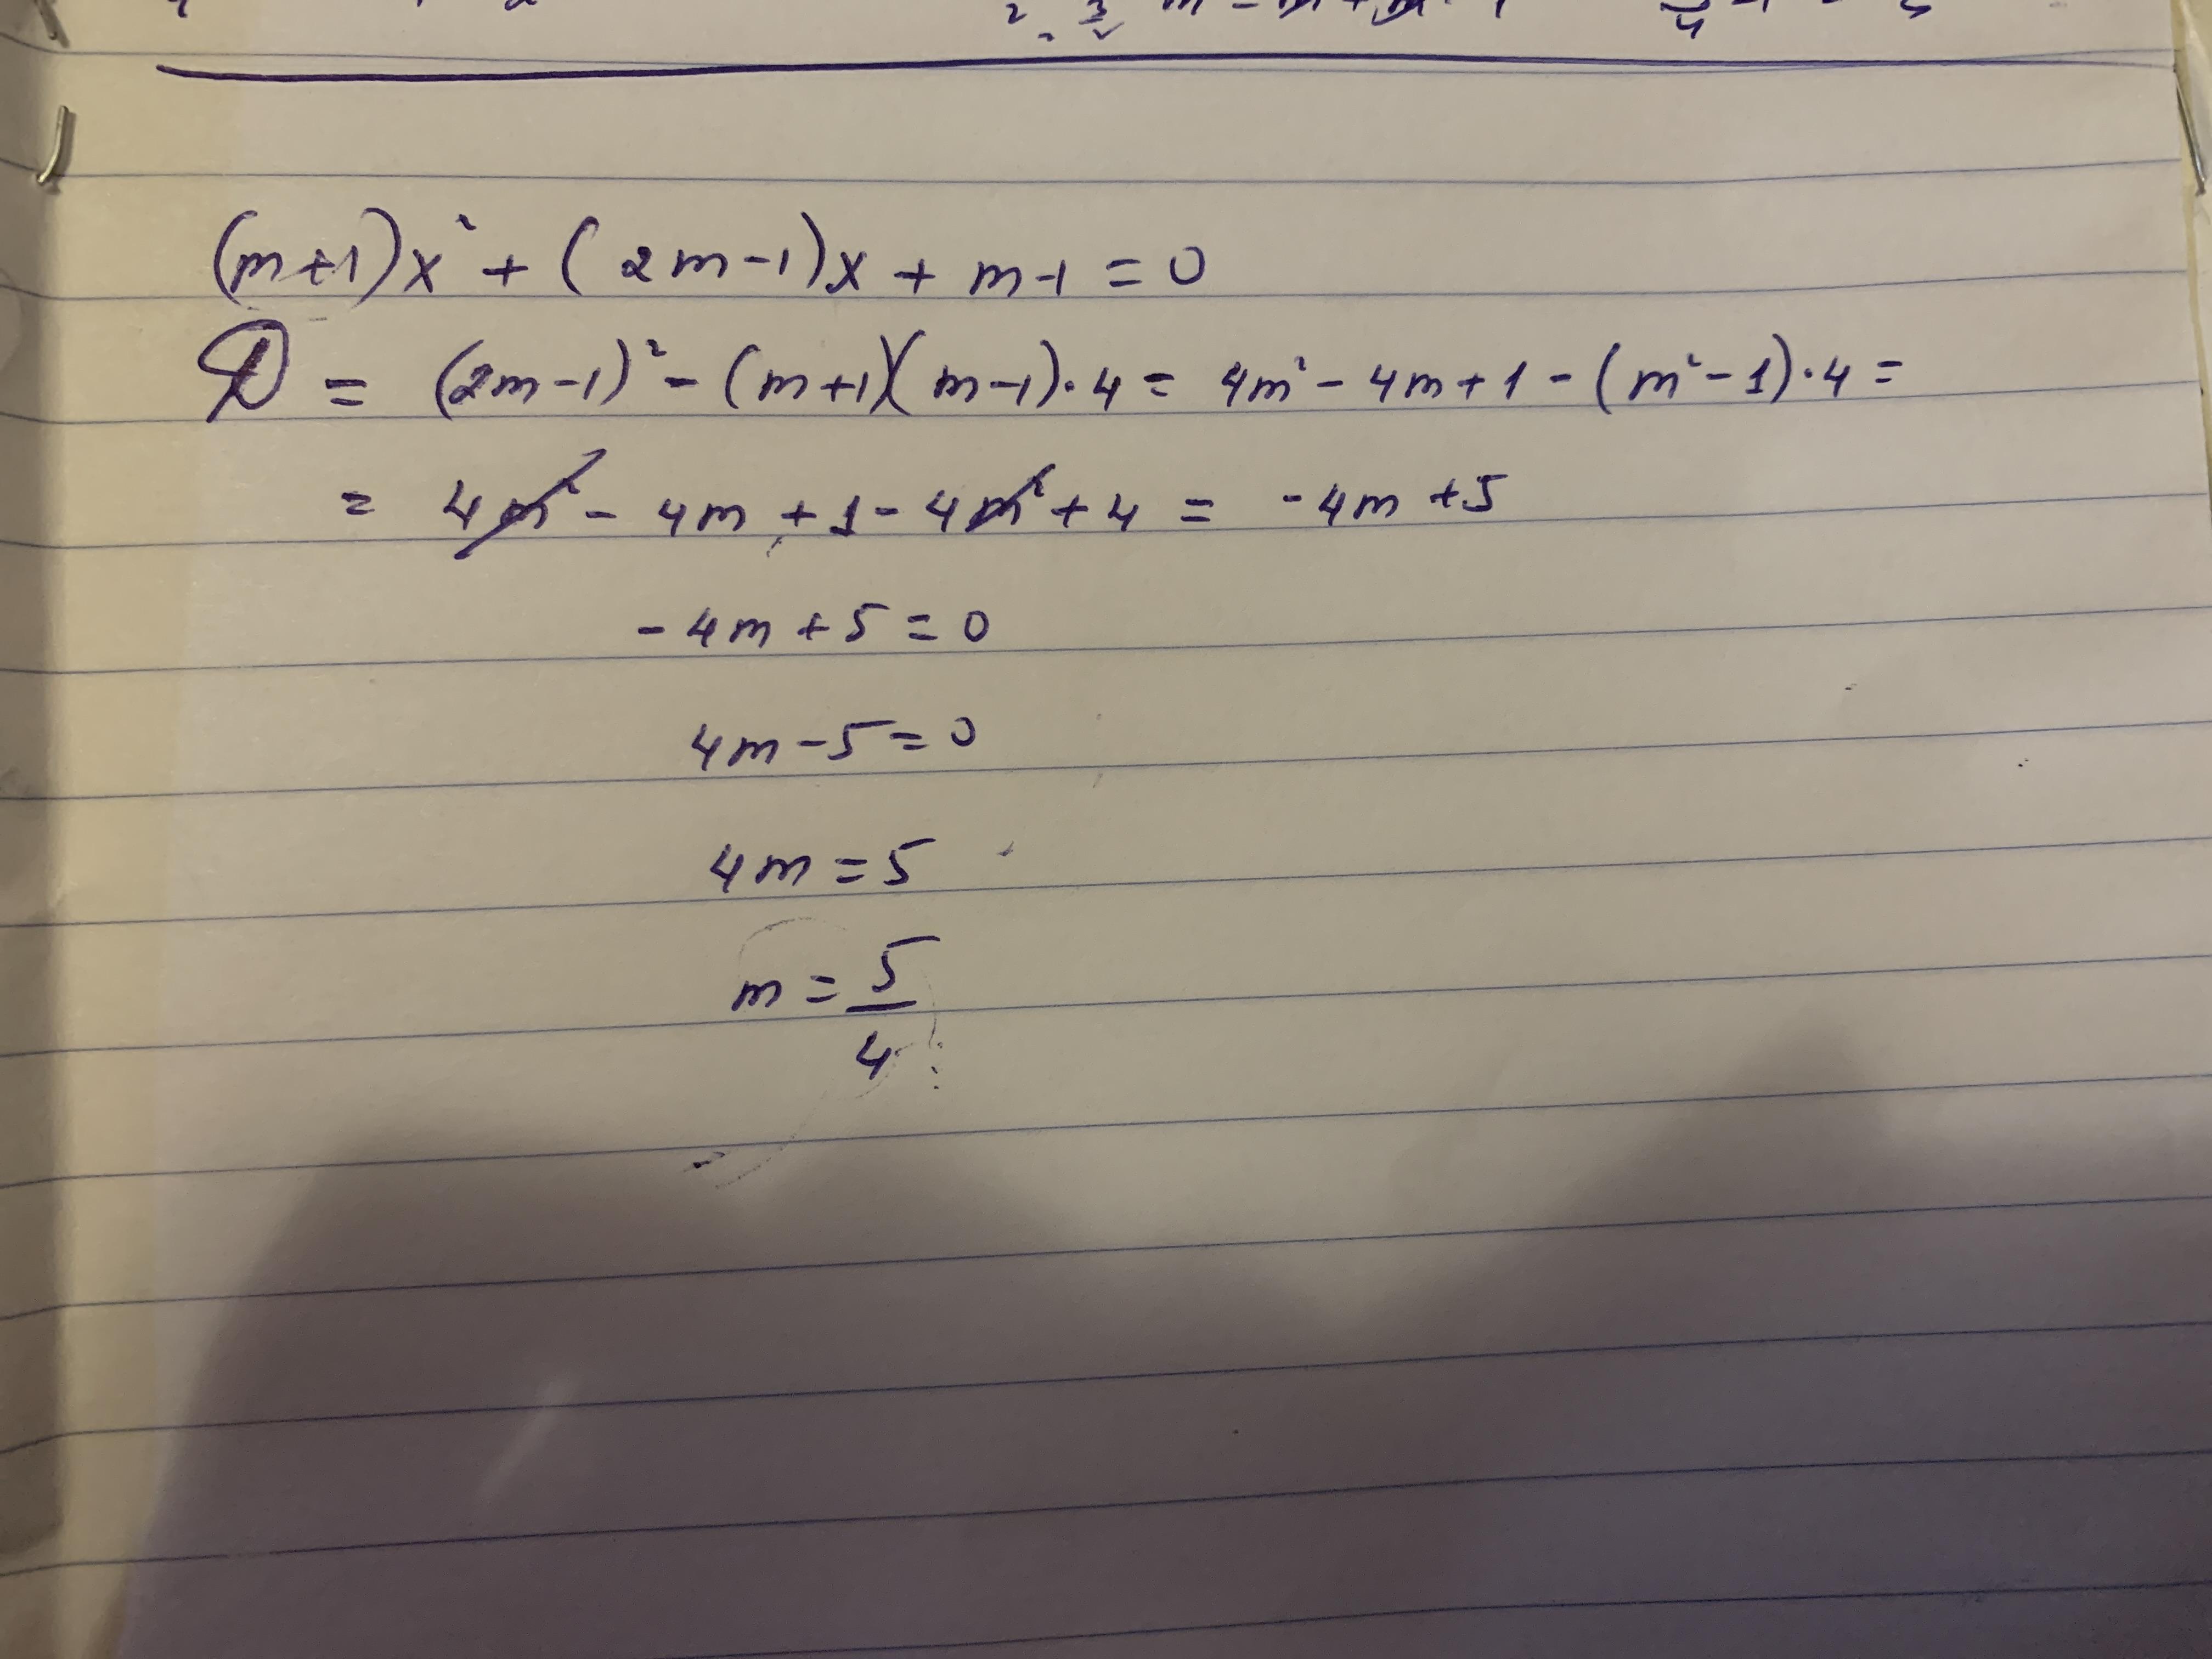 (m+1)x² + (2m-1)x + m-1 = 0
D = (2m-1)² - (m+1)(m-1)·4 = 4m² - 4m + 1 - (m²-1)·4 =
= 4m² - 4m + 1 - 4m² + 4 = -4m + 5
-4m + 5 = 0
4m - 5 = 0
4m = 5
m = 5/4